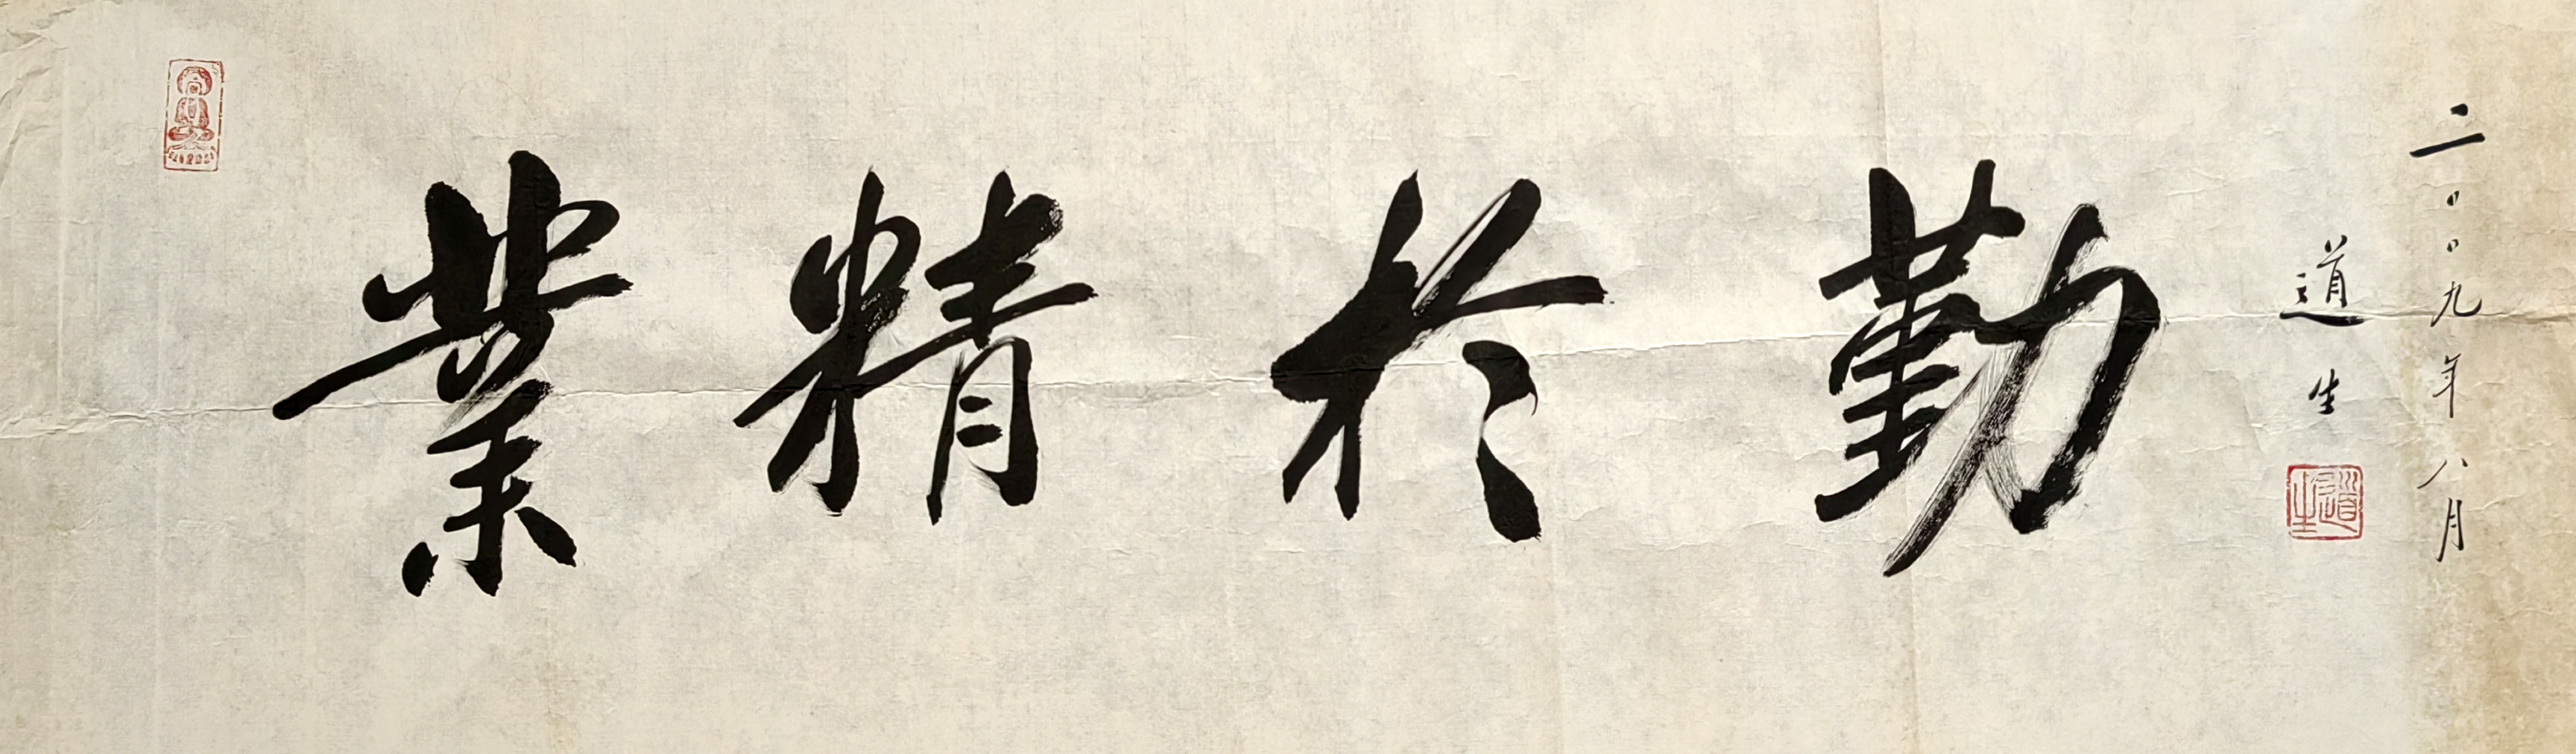 業精於勤
二〇〇九年八月
道生
道生